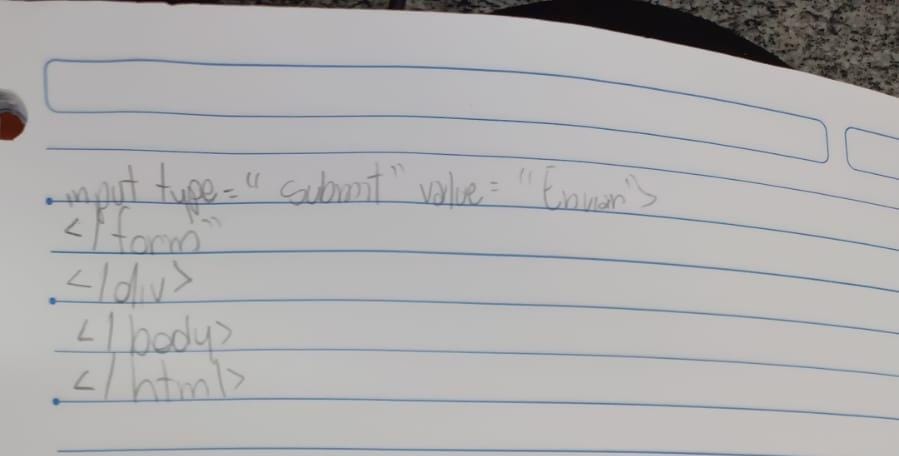 input type=" submit" value = "Enviar">
</form"
</div>
</body>
</html>